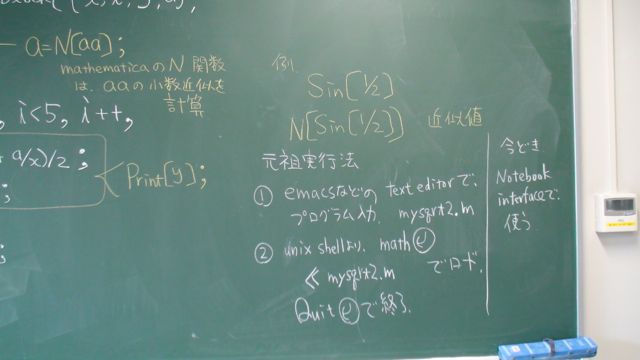 a=N[aa];
mathematicaのN 関数
は、aaの小数近似を
計算
, i<5, i++,
a/x)/2 ;
;
Print[y];
;
例.
Sin[1/2]
N[Sin[1/2]] 近似値
元祖実行法
① emacsなどの text editorで、
プログラム入力. mysqrt2.m
② unix shellより、math
≪ mysqrt2.m でロード.
Quit で終了.
今どき
Notebook
interfaceで、
使う